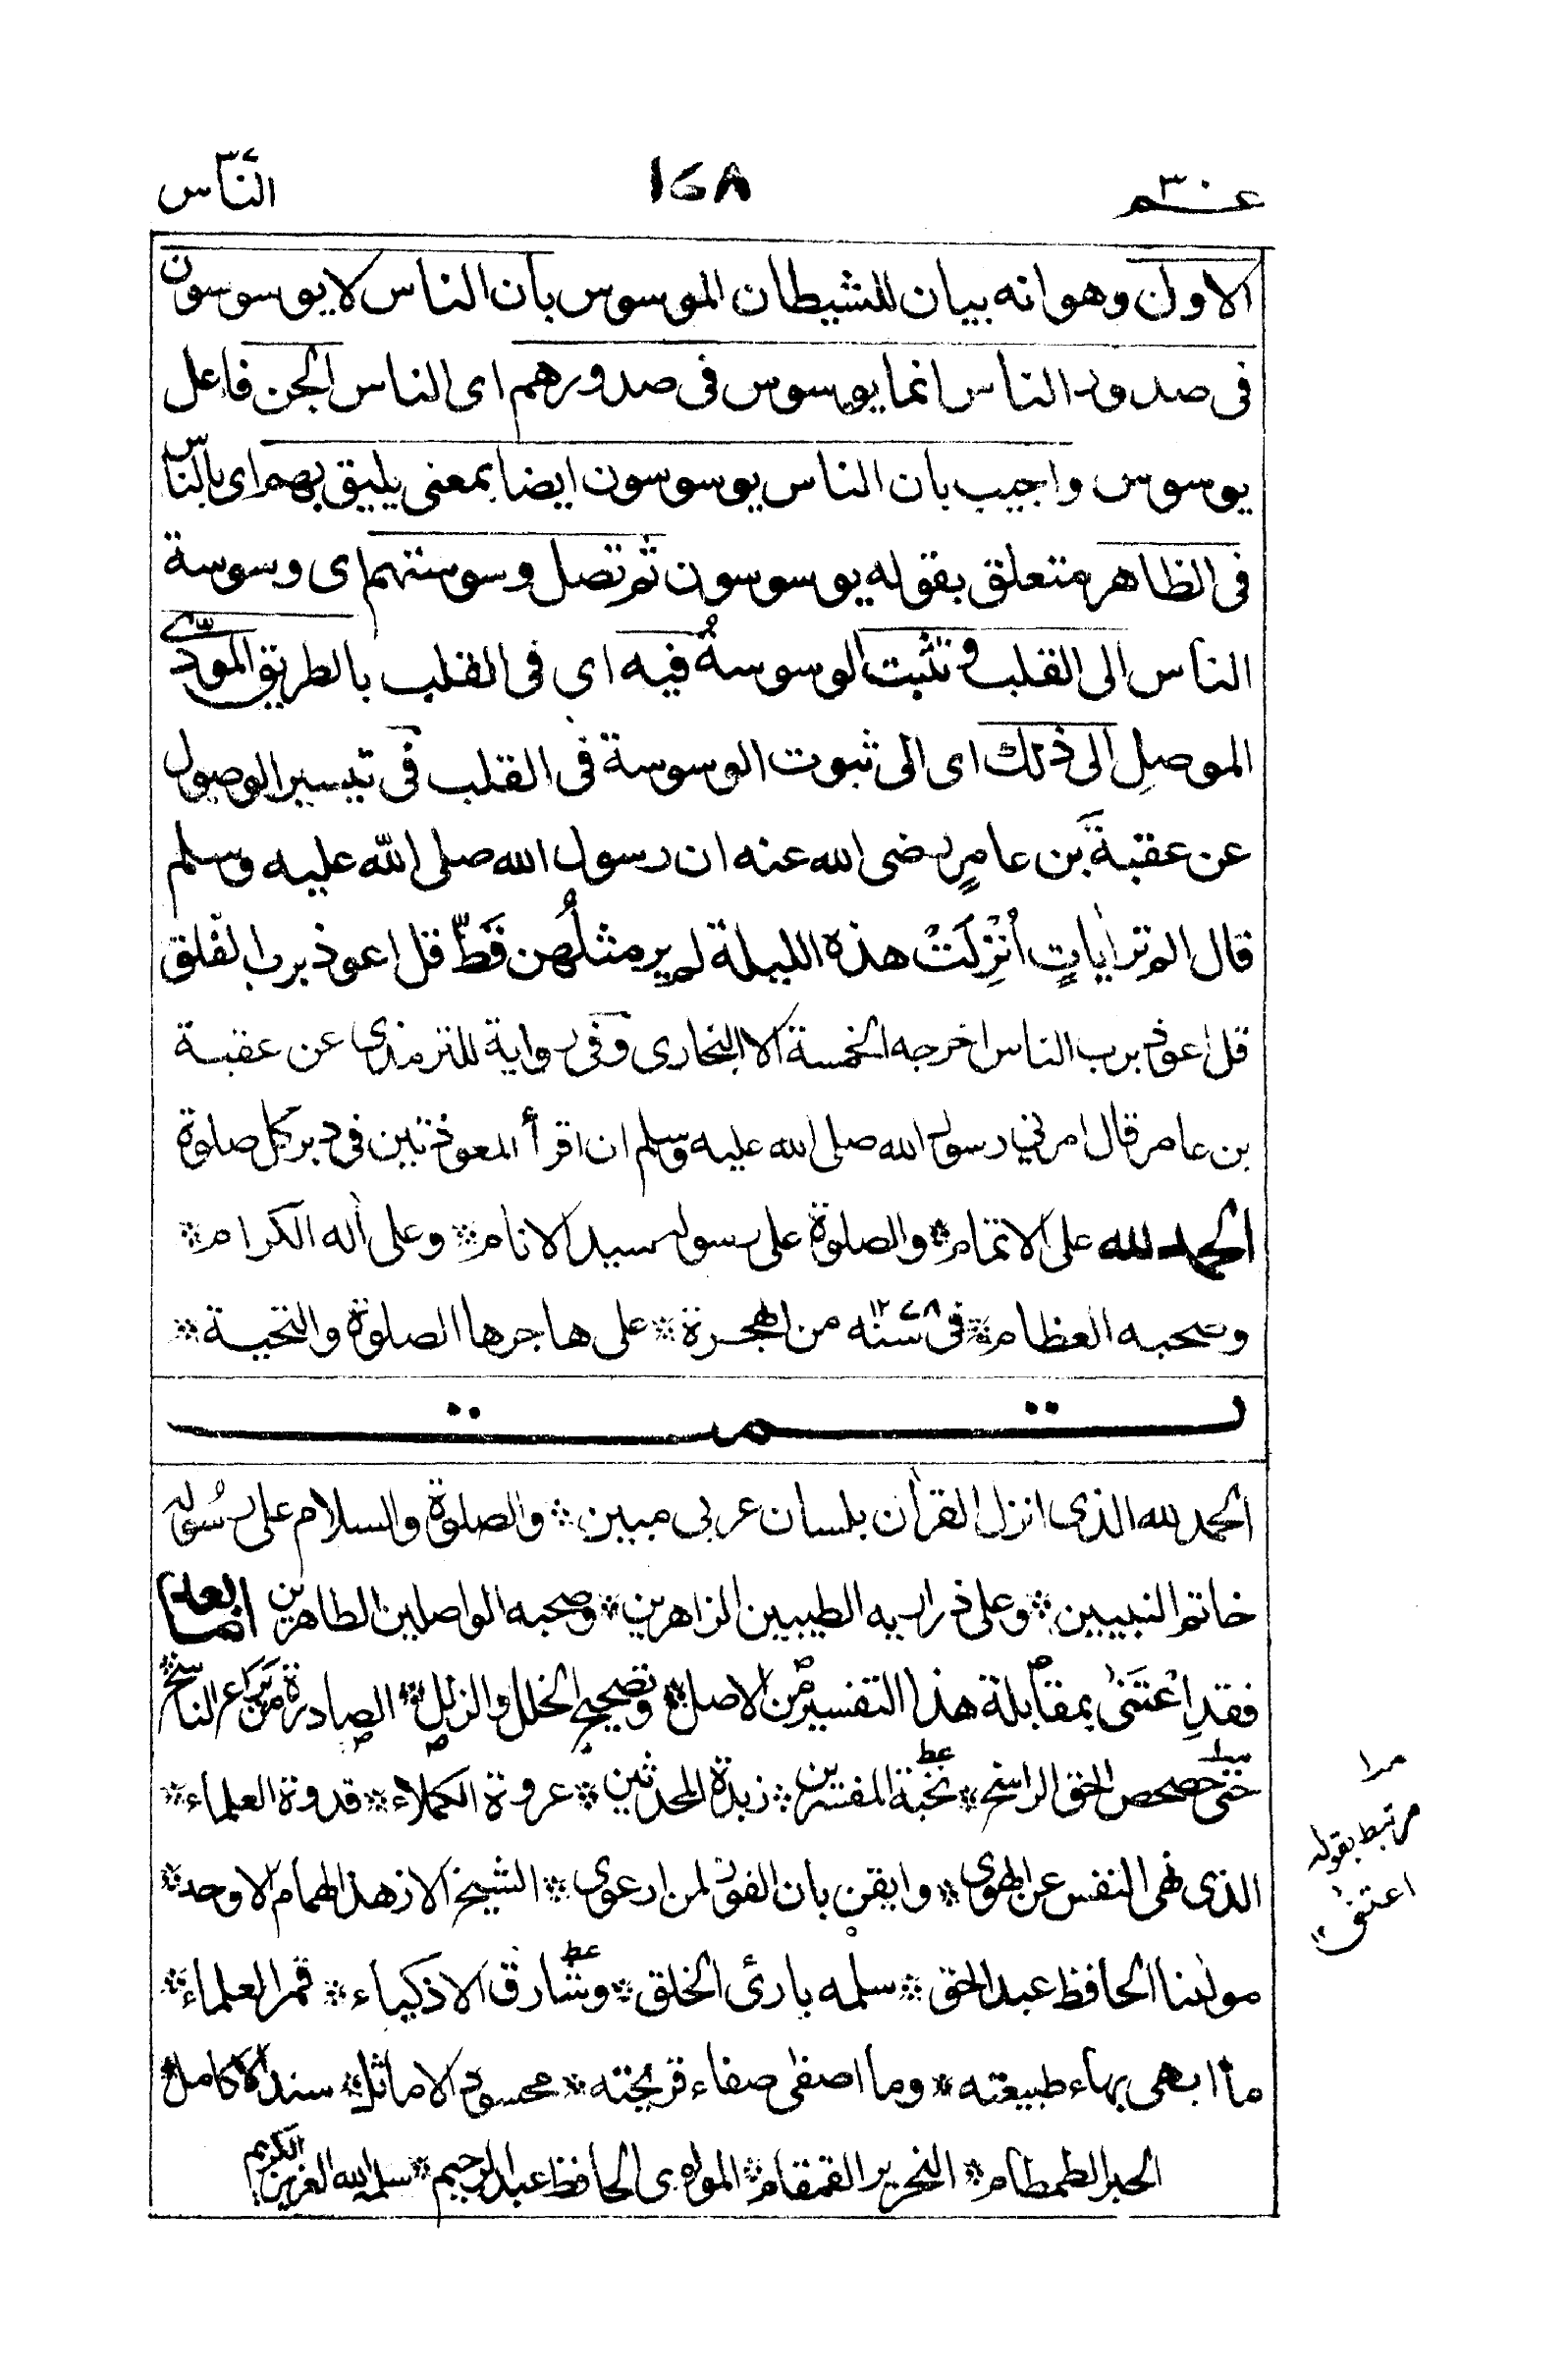 عم ٣٠
١٦٨
النّاس
الاول وهوانه بيان للشيطان الموسوس بان الناس لا يوسوسون
فى صدور الناس انما يوسوس فى صدورهم اى الناس الجن فاعل
يوسوس واجيب بان الناس يوسوسون ايضا بمعنى يليق بهم اى بالناس
فى الظاهر متعلق بقوله يوسوسون ثم تصل وسوستهم اى وسوسة
الناس الى القلب و تثبت الوسوسةُ فيه اى فى القلب بالطريق المودّى
الموصلِ الى ذلك اى الى ثبوت الوسوسة فى القلب فى تيسير الوصول
عن عقبةَ بن عامرٍ رضى الله عنه ان رسول الله صلى الله عليه وسلم
قال الم تر اٰياتٍ اُنْزِلَتْ هذه الليلة لم ير مثلُهن قَطُّ قل اعوذ برب الفلق
قل اعوذ برب الناس اخرجه الخمسة الا البخارى وفى رواية للترمذى عن عقبة
بن عامر قال امرني رسول الله صلى الله عليه وسلم ان اقرأ المعوذتين فى دبر كل صلوة
الحمد لله على الاتمام * والصلوة على رسوله سيد الانام * وعلى اٰله الكرام *
وصحبه العظام * فى سنه ١٢٧٨ من الهجرة * على هاجرها الصلوة والتحية *
تمت
الحمد لله الذى انزل القراٰن بلسان عربى مبين * والصلوة والسلام على رسُوله
خاتم النبيين * وعلى ذراريه الطيبين الزاهرين * وصحبه الواصلين الطاهرين اما بعد
فقدِ اعْتَنىٰ بمقابلة هذا التفسير من الاصل * وتصحيح الخلل والزلل * الصادرة من يراع الناسخ *
حتى حصحص الحق الراسخ * نخبة المفسرين * زبدة المحدثين * عروة الكملاء * قدوة العلماء *
الذى نهى النفس عن الهوى * وايقن بان الفوز لمن ارعوى * الشيخ الازهد الهمام الاوحد *
مولٰنا الحافظ عبد الحق * سلمه بارئ الخلق * وشارق الاذكياء * قمر العلماء *
ما ابهى بهاء طبيعته * وما اصفى صفاء قريحته * محسود الاماثل * سند الاكامل *
الحبر الطمطام * النحرير القمقام * المولوى الحافظ عبد الرحيم * سلمه الله العزيز الكريم
مرتبط بقوله
اعتنىٰ